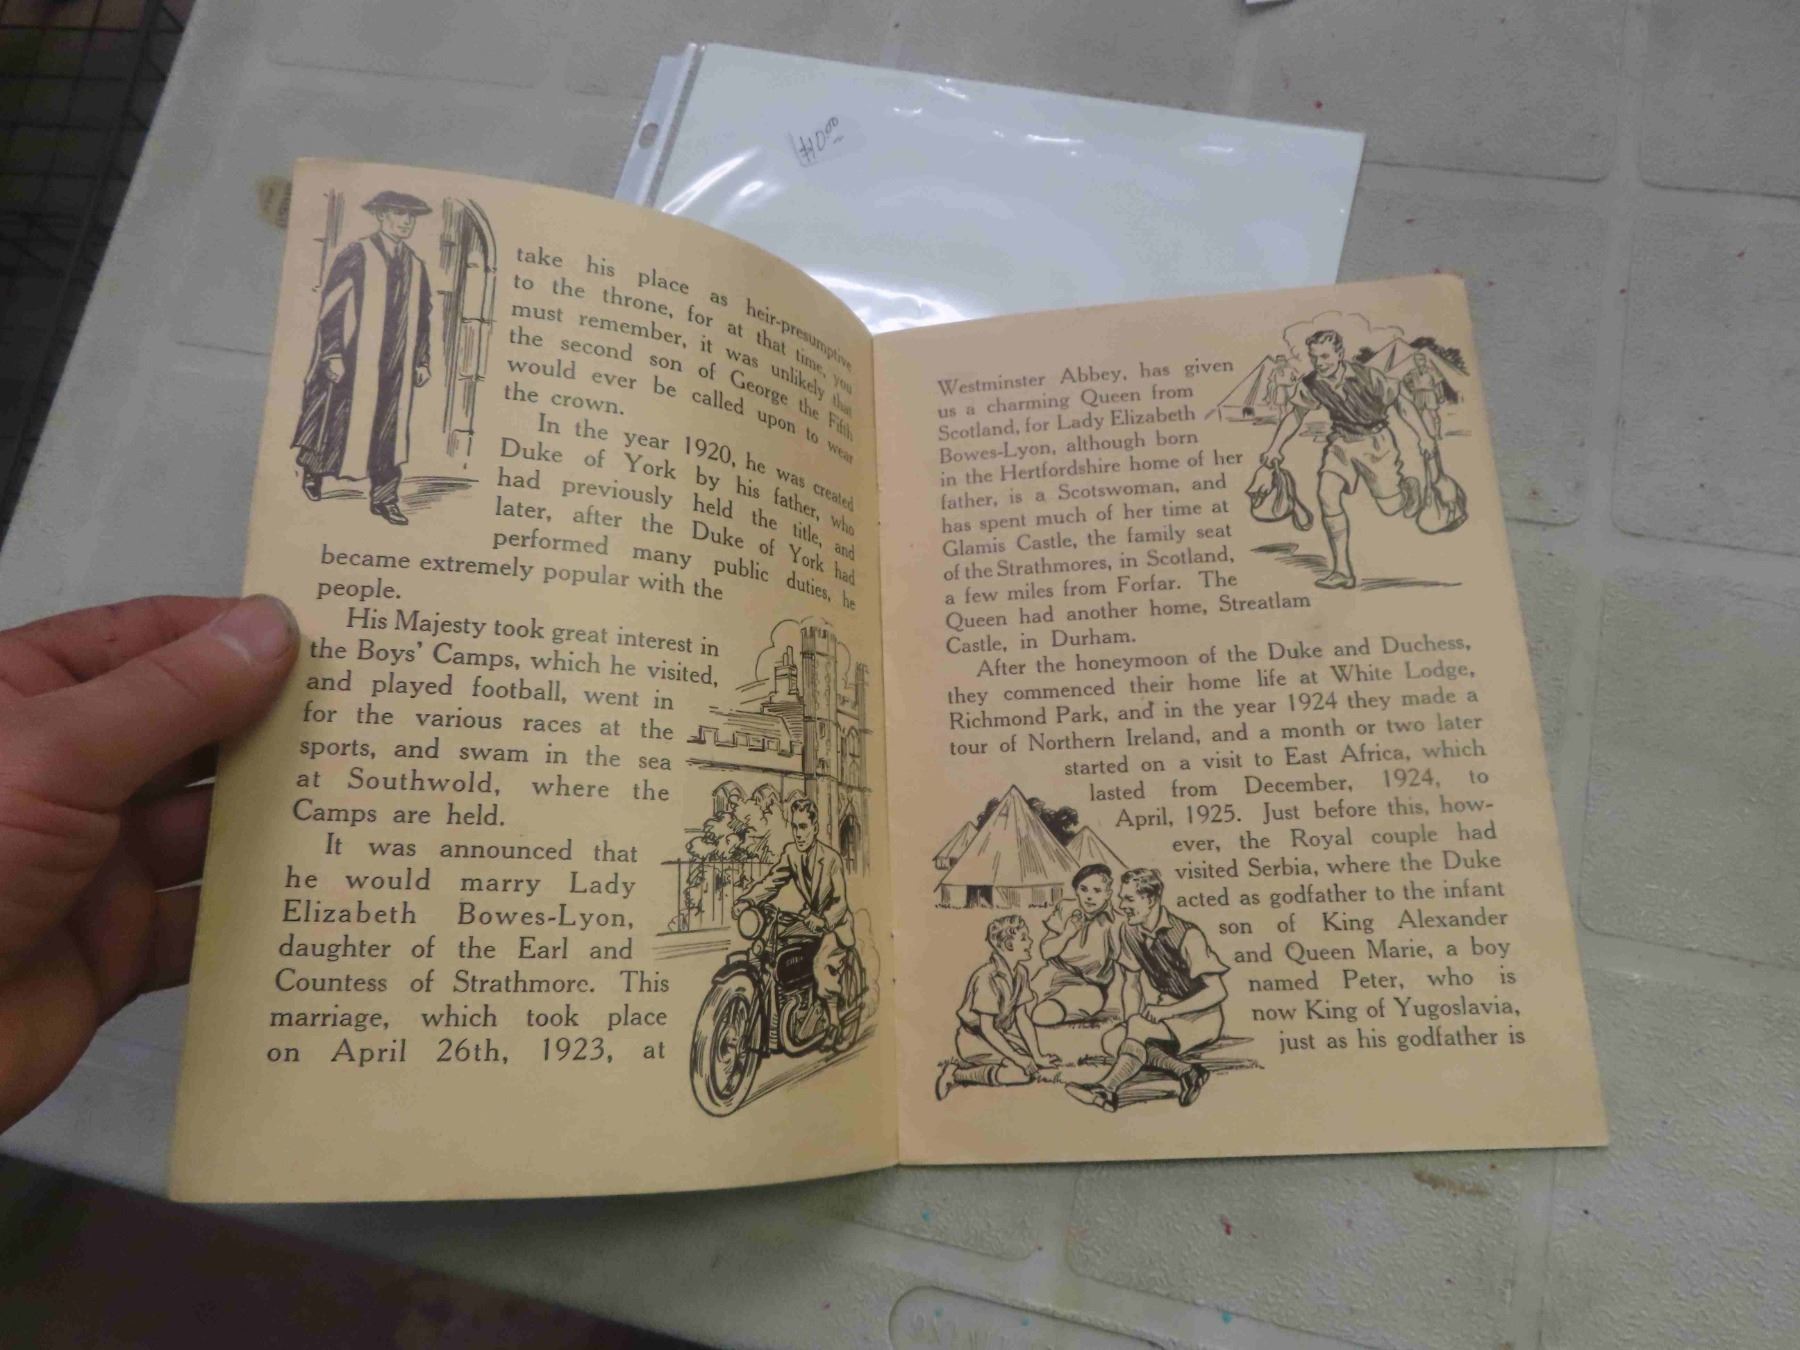 $10.00
take his place as heir-presumptive
to the throne, for at that time, you
must remember, it was unlikely that
the second son of George the Fifth
would ever be called upon to wear
the crown.
In the year 1920, he was created
Duke of York by his father, who
had previously held the title, and
later, after the Duke of York had
performed many public duties, he
became extremely popular with the
people.
His Majesty took great interest in
the Boys' Camps, which he visited,
and played football, went in
for the various races at the
sports, and swam in the sea
at Southwold, where the
Camps are held.
It was announced that
he would marry Lady
Elizabeth Bowes-Lyon,
daughter of the Earl and
Countess of Strathmore. This
marriage, which took place
on April 26th, 1923, at
Westminster Abbey, has given
us a charming Queen from
Scotland, for Lady Elizabeth
Bowes-Lyon, although born
in the Hertfordshire home of her
father, is a Scotswoman, and
has spent much of her time at
Glamis Castle, the family seat
of the Strathmores, in Scotland,
a few miles from Forfar. The
Queen had another home, Streatlam
Castle, in Durham.
After the honeymoon of the Duke and Duchess,
they commenced their home life at White Lodge,
Richmond Park, and in the year 1924 they made a
tour of Northern Ireland, and a month or two later
started on a visit to East Africa, which
lasted from December, 1924, to
April, 1925. Just before this, how-
ever, the Royal couple had
visited Serbia, where the Duke
acted as godfather to the infant
son of King Alexander
and Queen Marie, a boy
named Peter, who is
now King of Yugoslavia,
just as his godfather is